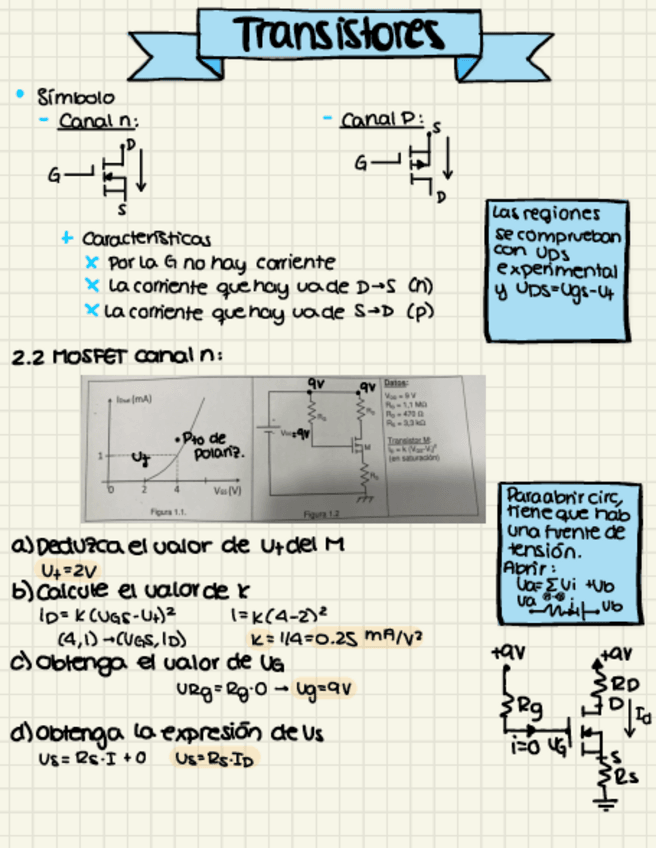 Transistores
• Símbolo
- Canal n:
- Canal P:
D
G
S
S
G
D
+ Características
x Por la G no hay corriente
x La corriente que hay va de D→S (n)
x La corriente que hay va de S→D (p)
Las regiones
se comprueban
con UDS
experimental
y UDS=Ugs-Ut
2.2 MOSFET canal n:
(mA)
Pto de
polariz.
Ut
1
0 2 4 VGS (V)
Figura 1.1.
9V 9V
=9V
M
Figura 1.2
Datos:
VGG = 9 V
RG = 1,1 MΩ
RD = 470 Ω
RS = 3,3 kΩ
Transistor M:
ID = k (VGS-Vt)²
(en saturación)
Para abrir circ,
tiene que hab
una fuente de
tensión.
Abrir:
Ua=ΣUi +Ub
Ua
Ub
a) Deduzca el valor de Ut del M
Ut=2V
b) Calcule el valor de K
ID= K (UGS-Ut)² 1=K(4-2)²
(4,1)→(UGS, ID) K=1/4=0.25 mA/V²
c) Obtenga el valor de UG
URg=Rg·0 → Ug=9V
d) Obtenga la expresión de Us
Us= Rs·I +0 Us=Rs·ID
+9V +9V
RD
Rg D Id
i=0 UG
S
Rs